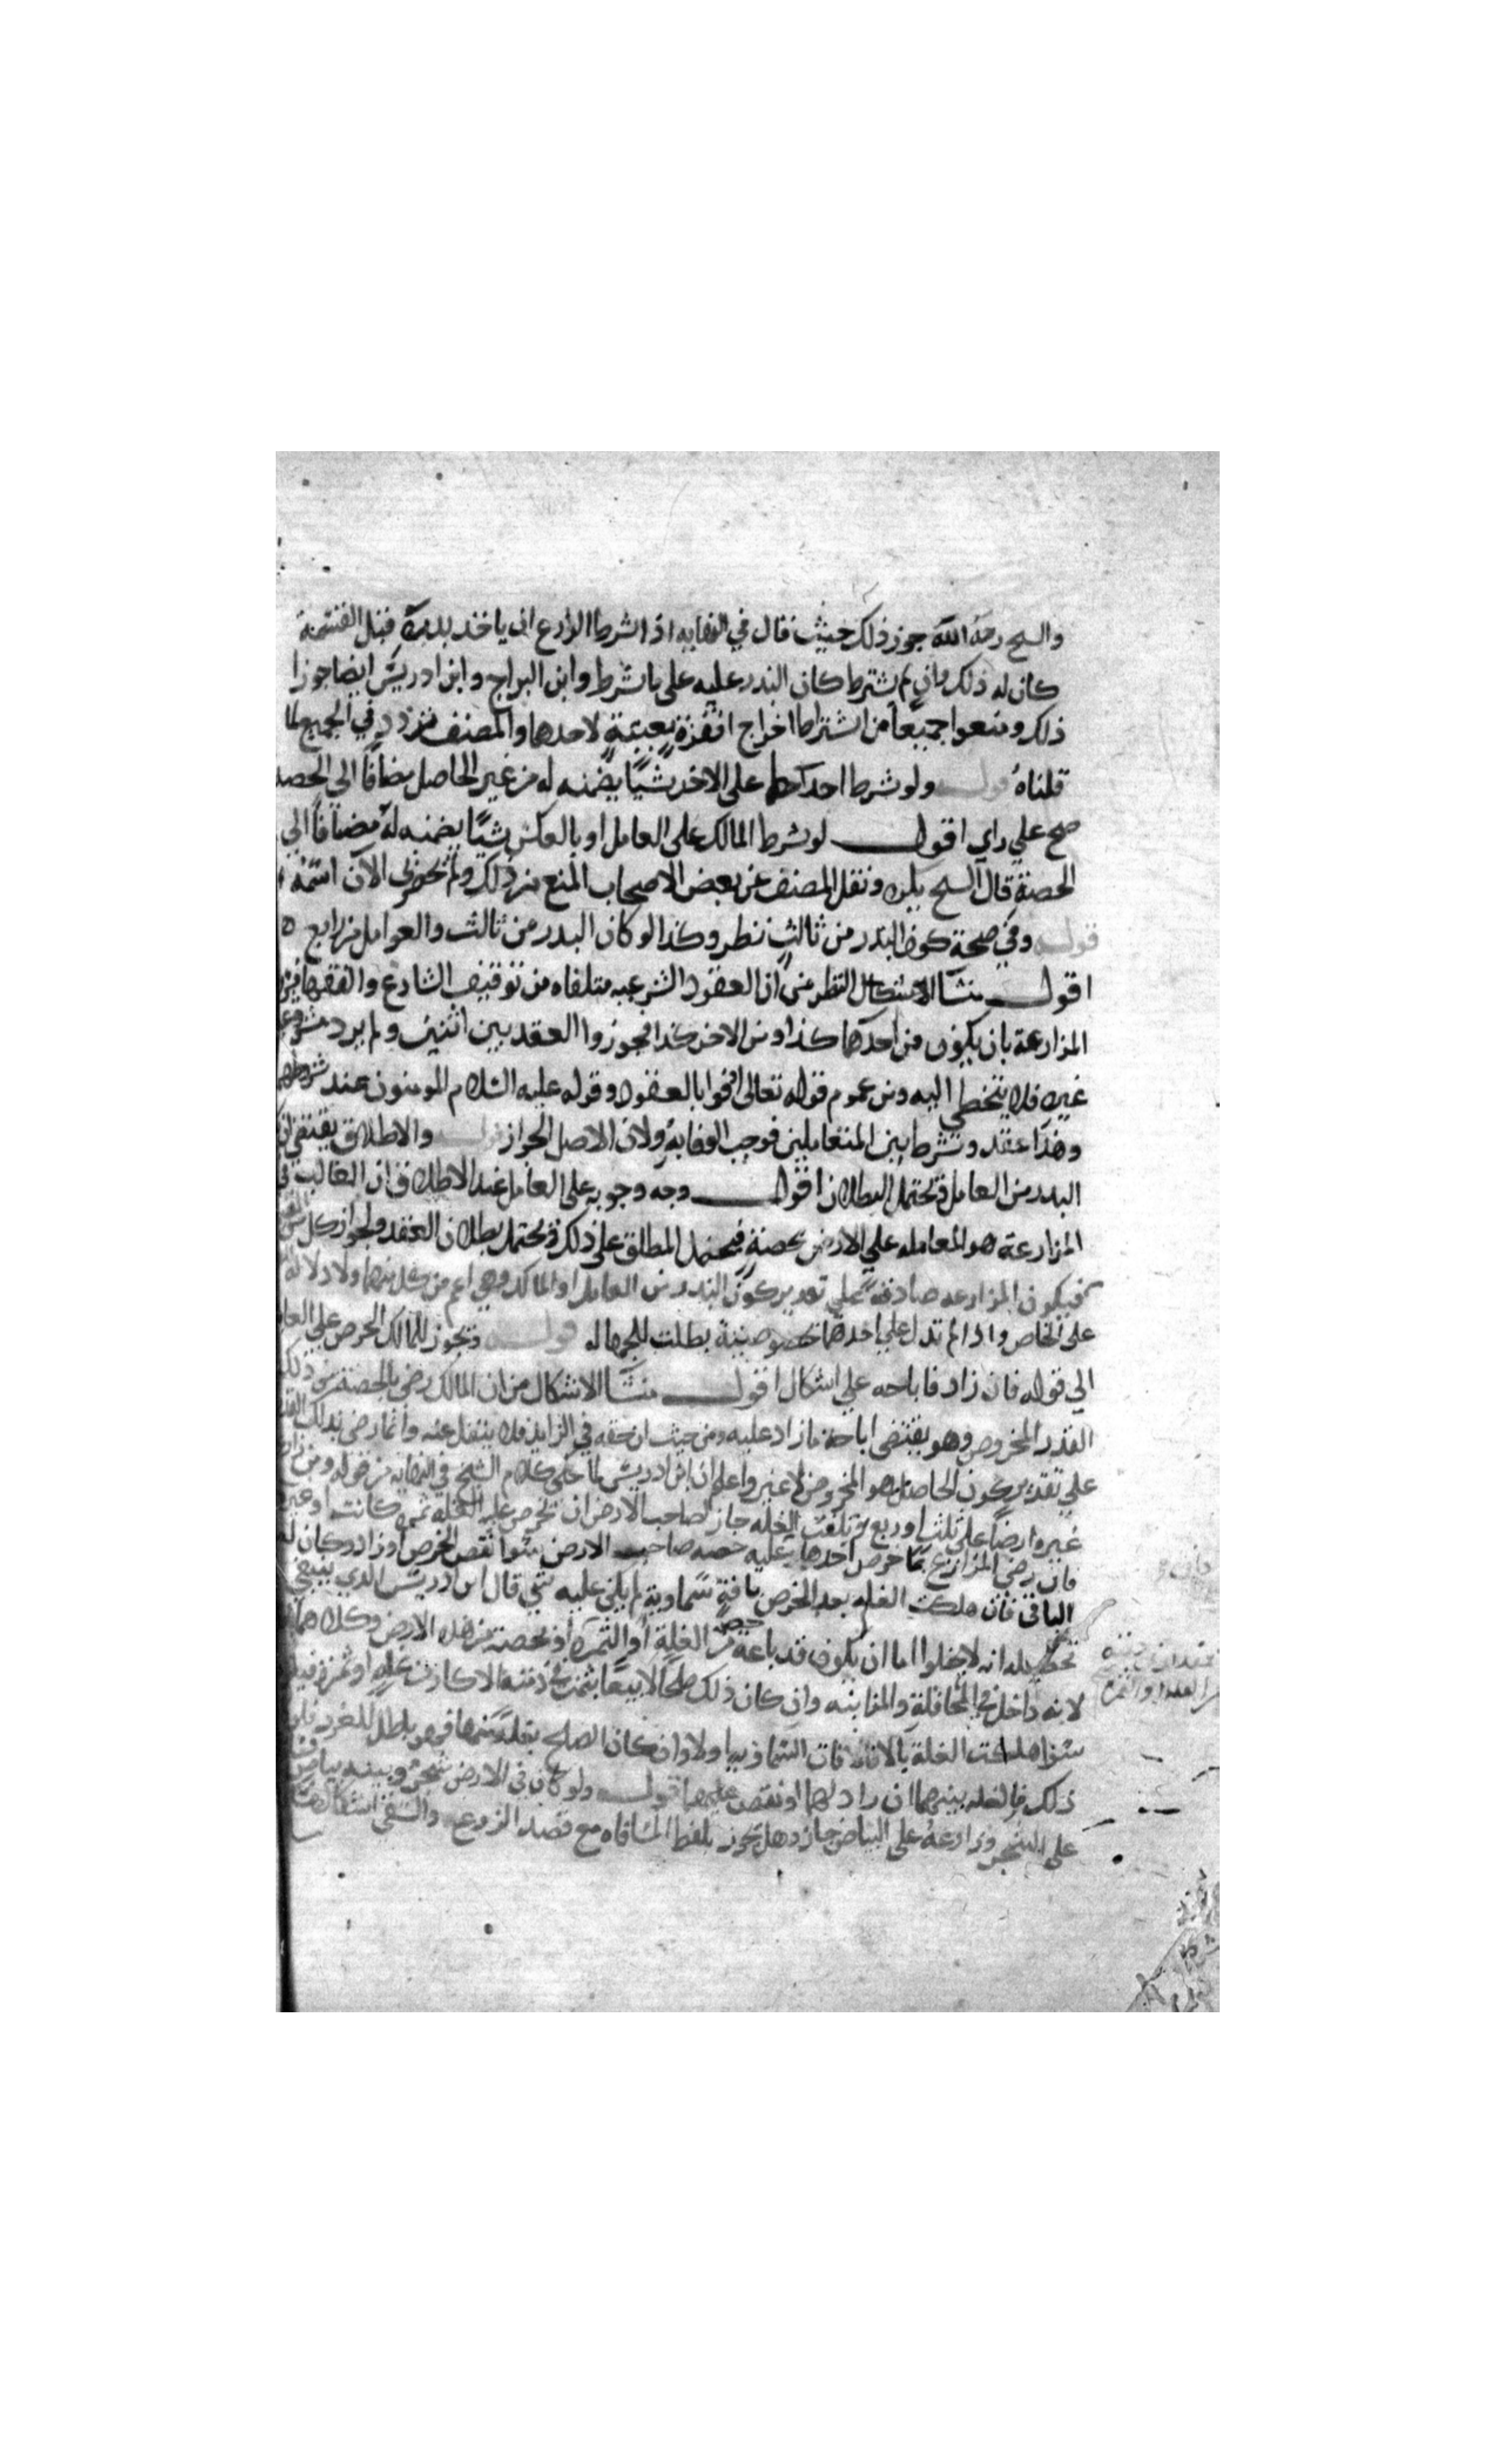 والشيخ رحمه الله جوز ذلك حيث قال في النهايه اذا شرط الزارع ان ياخذ بذره قبل القسمة
كان له ذلك وان لم يشترط كان البذر عليه على ما شرط وابن البراج وابن ادريس ايضا جوزا
ذلك ومنعوا جميعا من اشتراط اخراج اقفزة معينة لاحدهما والمصنف تردد في الجميع لما
قلناه قوله ولو شرط احدهما على الاخر شيًا يضمنه له من غير الحاصل مضافا الي الحصة
صح علي راي اقول لو شرط المالك على العامل او بالعكس شيًا يضمنه له مضافا الي
الحصة قال الشيخ يكره ونقل المصنف عن بعض الاصحاب المنع من ذلك ولم يحضرني الآن اسمه
قوله وفي صحة كون البذر من ثالث نظر وكذا لو كان البذر من ثالث والعوامل من رابع ه
اقول منشا النظر من ان العقود الشرعيه متلقاه من توقيف الشارع والفقها
المزارعة بان يكون من احدهما كذا ومن الاخر كذا فجوزوا العقد بين اثنين ولم يرد مشروعية
غيره فلا يتخطي اليه ومن عموم قوله تعالى اوفوا بالعقود وقوله عليه السلام المومنون عند شروطهم
وهذا عقد وشرط بين المتعاملين فوجب الوفا به ولان الاصل الجواز قوله والاطلاق يقتضي ان
البذر من العامل ويحتمل البطلان اقول وجه وجوبه على العامل عند الاطلاق ان الغالب في
المزارعة هو المعامله علي الارض بحصة فيحمل المطلق على ذلك ويحتمل بطلان العقد لجواز كل من
فيكون المزارعه صادقة علي تقدير كون البذر من العامل او المالك وهي اعم من كل منهما ولا دلالة
على الخاص واذا لم تدل علي احدهما بخصوصيته بطلت للجهاله قوله ويجوز للمالك الخرص علي العامل
الي قوله فان زاد فاباحه علي اشكال اقول منشا الاشكال من ان المالك رضي بالحصة من ذلك
القدر المخروص وهو يقتضي اباحة ما زاد عليه ومن حيث ان حقه في الزايد فلا ينتقل عنه وانما رضي بذلك القدر
علي تقدير كون الحاصل هو المخروص لا غير واعلم ان ابن ادريس لما حكى كلام الشيخ في النهايه من قوله ومن زارع
غيره ارضا على ثلث او ربع ثم بلغت الغله جاز لصاحب الارض ان يخرص عليه الغله ثمره كانت او غيرها
فان رضي المزارع بما خرص اخذها وعليه حصه صاحب الارض سوا نقص الخرص او زاد وكان له
الباقى فان هلكت الغله بعد الخرص بافة سماوية لم يلن عليه شي قال ابن ادريس الذي ينبغي
تحصيله انه لا يخلوا اما ان يكون قد باعه حصته من الغلة او الثمرة او بحصته من هذه الارض وكلاهما
لانه داخل في المحاقلة والمزابنه وان كان ذلك صلحا لا بيعا بثمن في ذمته الاكار من غله او ثمر
سوا هلكت الغلة بالافات السماويه اولا وان كان الصلح بغلة منها فهو باطل للغرر فان
ذلك فالغله بينهما ان زاد لهما او نقص عليهما قوله ولو كان في الارض شجر وبينه بياض
على الشجر وزارعه على البياض جاز وهل يجوز بلفظ المساقاه مع قصد الزرع والسقي اشكال